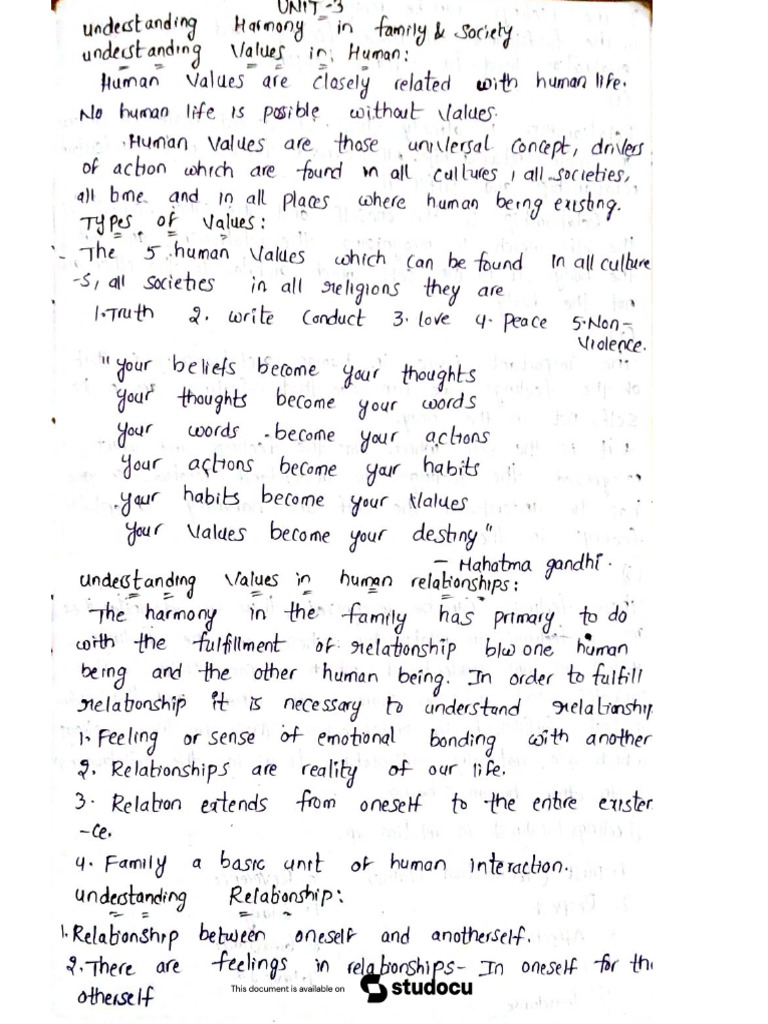 UNIT-3
understanding Harmony in family & Society.
understanding Values in Human:
Human Values are closely related with human life.
No human life is posible without values.
Human values are those universal concept, drivers
of action which are found in all cultures, all societies,
all time and in all places where human being existing.
Types of Values:
- The 5 human values which can be found in all culture
-s, all societies in all religions they are
1.Truth 2. write conduct 3. love 4. peace 5.Non-
Violence.
"your beliefs become your thoughts
your thoughts become your words
your words become your actions
your actions become your habits
your habits become your values
your values become your destiny"
- Mahatma gandhi.
understanding values in human relationships:
The harmony in the family has primary to do
with the fulfillment of relationship b/w one human
being and the other human being. In order to fulfill
relationship it is necessary to understand relationship
1. Feeling or sense of emotional bonding with another
2. Relationships are reality of our life.
3. Relation extends from oneself to the entire existen
-ce.
4. Family a basic unit of human interaction.
understanding Relationship:
1. Relationship between oneself and anotherself.
2. There are feelings in relationships- In oneself for the
otherself
This document is available on studocu